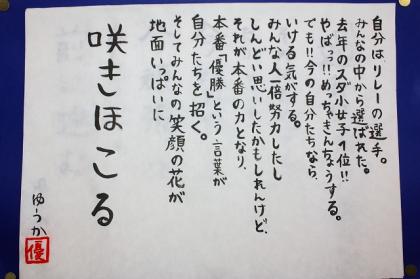 自分は、リレーの選手。
みんなの中から選ばれた。
去年のスダ小女子1位!!
やばっ!!めっちゃきんちょうする。
でも!!今の自分たちなら、
いける気がする。
みんな人一倍努力したし
しんどい思いしたかもしれんけど、
それが本番の力となり、
本番「優勝」という言葉が
自分たちを招く。
そしてみんなの笑顔の花が
地面いっぱいに
咲きほこる
ゆうか
優